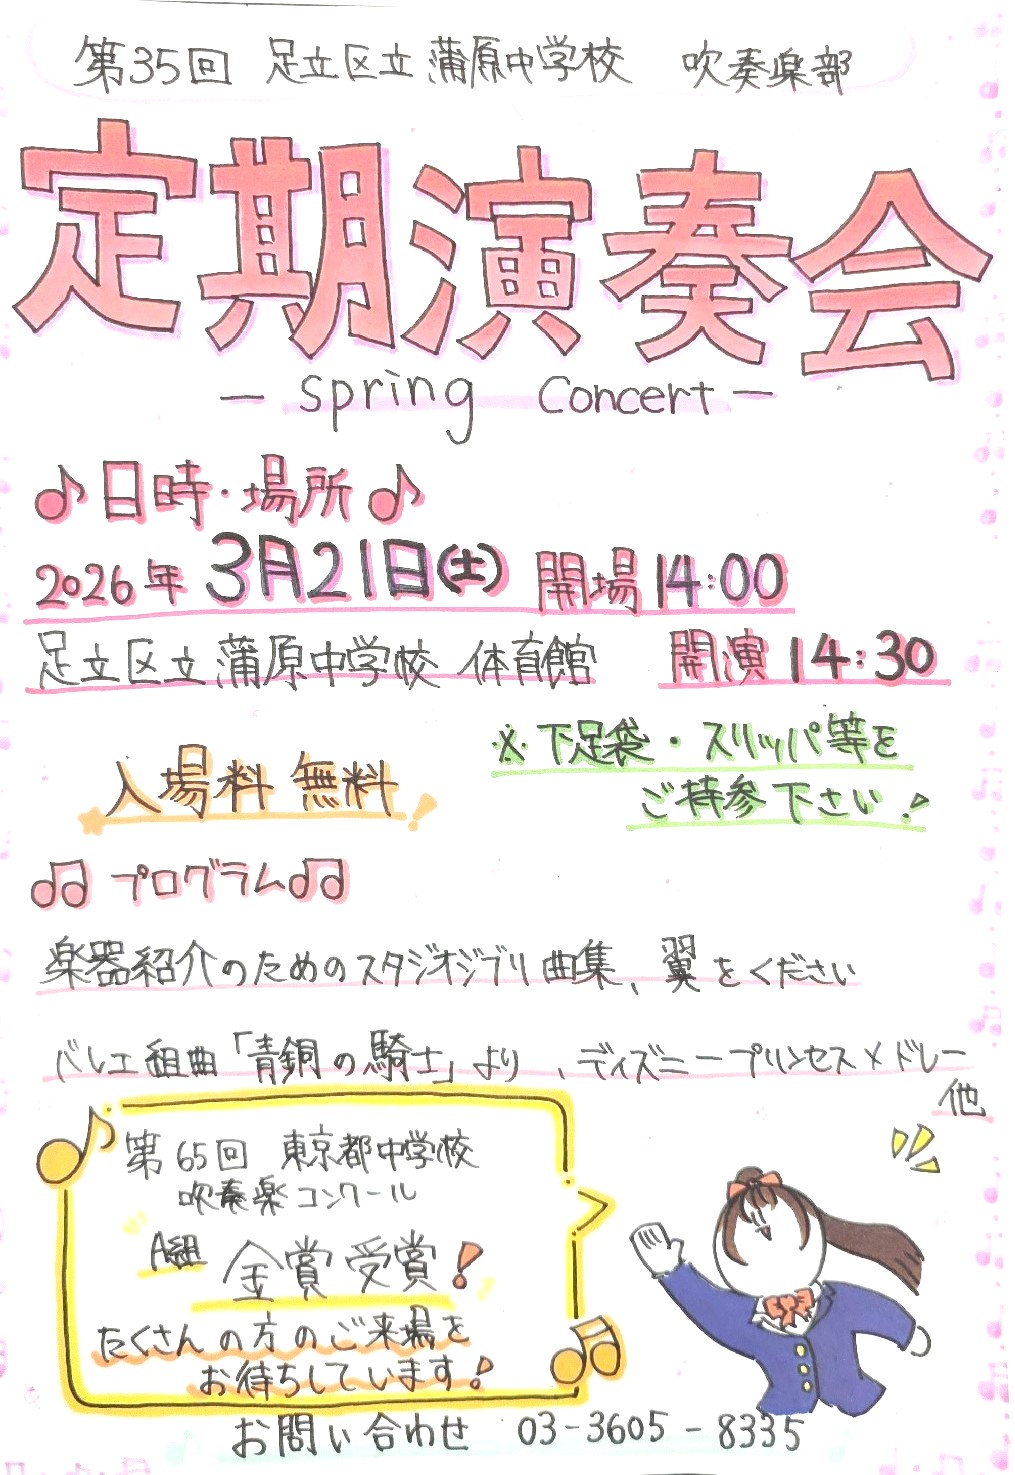 第35回 足立区立蒲原中学校 吹奏楽部
定期演奏会
― Spring Concert ―
♪日時・場所♪
2026年 3月21日(土) 開場 14:00
足立区立蒲原中学校 体育館 開演 14:30
入場料 無料!
※下足袋・スリッパ等を
ご持参下さい!
♫プログラム♫
楽器紹介のためのスタジオジブリ曲集、翼をください
バレエ組曲「青銅の騎士」より、ディズニープリンセスメドレー
他
第65回 東京都中学校
吹奏楽コンクール
A組 金賞受賞!
たくさんの方のご来場を
お待ちしています!
お問い合わせ 03-3605-8335